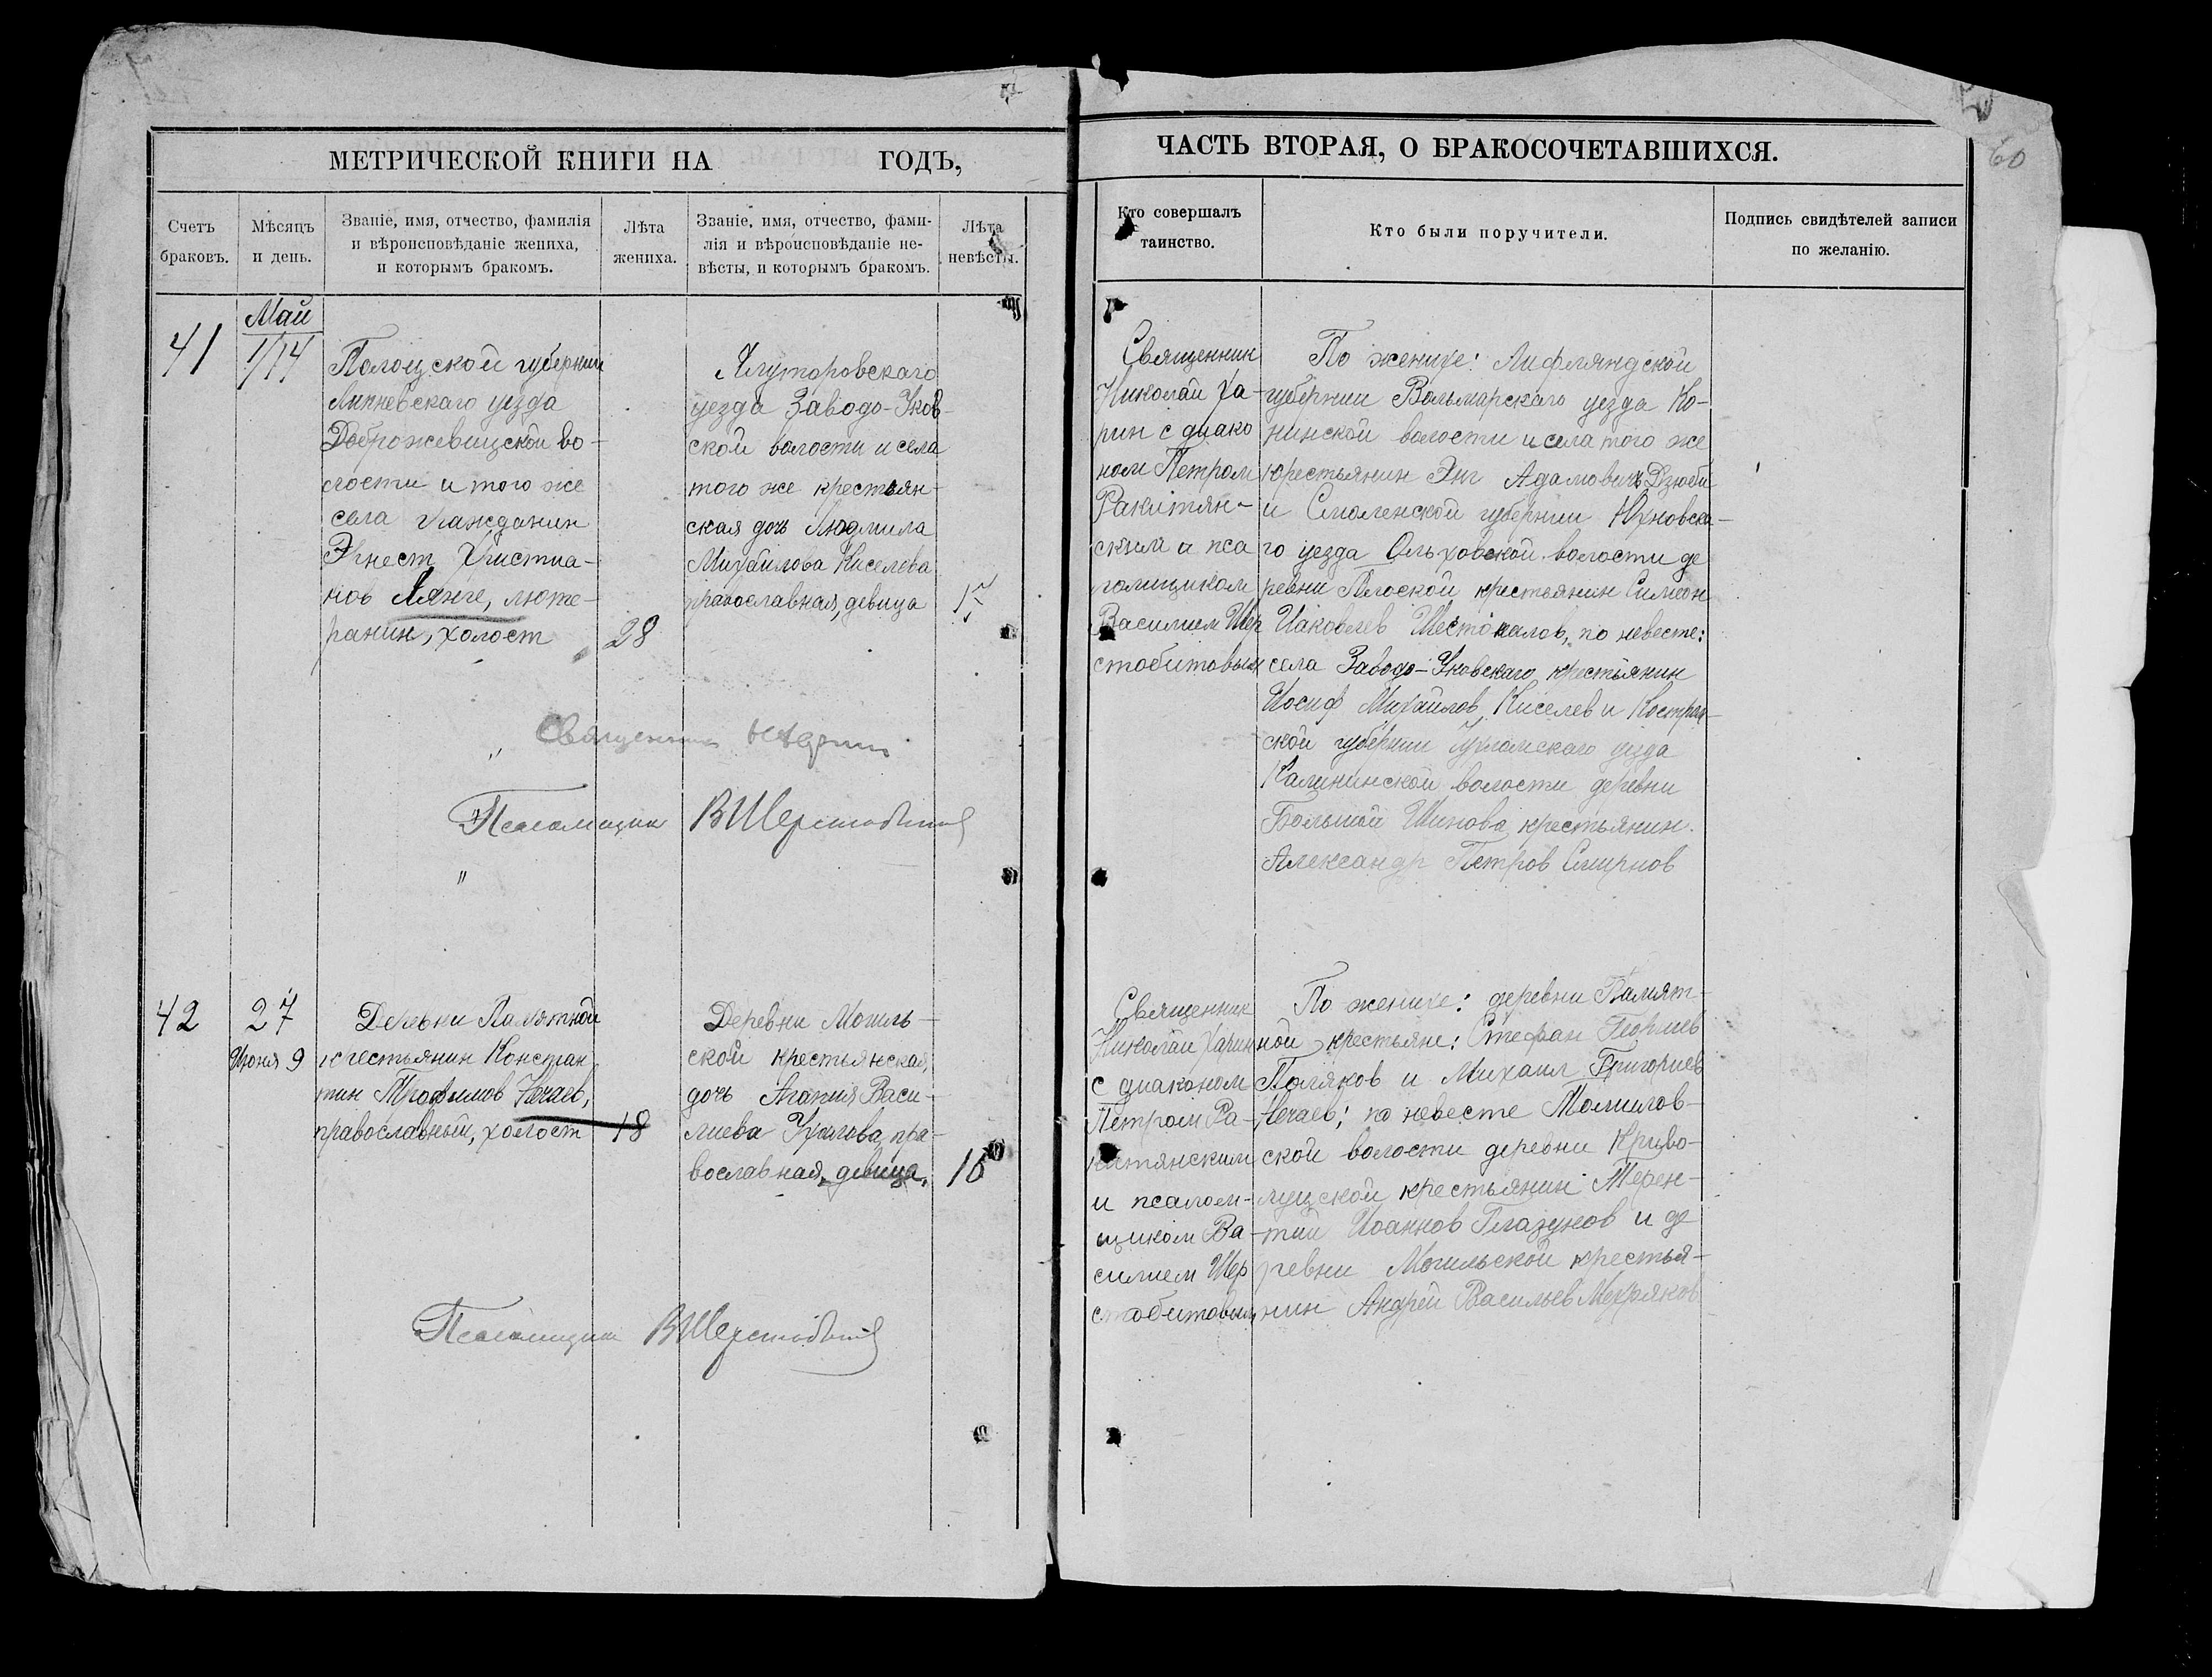 МЕТРИЧЕСКОЙ КНИГИ НА ГОДЪ,
Счетъ браковъ.
Мѣсяцъ и день.
Званіе, имя, отчество, фамилія
и вѣроисповѣданіе жениха,
и которымъ бракомъ.
Лѣта жениха.
Званіе, имя, отчество, фами-
лія и вѣроисповѣданіе не-
вѣсты, и которымъ бракомъ.
Лѣта невѣсты.
41
Май
1/14
губернии
уезда
Доброжевицской во-
лости и того же
села гражданин
Эрнест Христиа-
нов Лянге, люте-
ранин, холост
28
Ялуторовскаго
уезда Заводо-Уков-
ской волости и села
того же крестьян-
ская дочь Людмила
Михаилова Киселева
православная, девица
Священник
Псаломщик ВШерстобитов
"
42
27
Июня 9
Деревни Памятной
крестьянин Констан
тин Трофимов Нечаев,
православный, холост
18
Деревни Могиль-
ской крестьянская
дочь Агапия Васи-
лиева Ухалова, пра-
вославная, девица,
16
Псаломщик ВШерстобитов
ЧАСТЬ ВТОРАЯ, О БРАКОСОЧЕТАВШИХСЯ.
60
Кто совершалъ
таинство.
Кто были поручители.
Подпись свидѣтелей записи
по желанію.
Священник
Николай Ха-
рин с диако
ном Петром
Ракитян-
ским и пса
ломщиком
Василием Шер
стобитовым
По женихе: Лифляндской
губернии Вольмарскаго уезда Ко-
нинской волости и села того же
крестьянин Адамович
и Смоленской губернии Юхновска-
го уезда Ольховской волости де
ревни Плоской крестьянин Симеон
Иаковлев по невесте:
села Заводо-Уковскаго крестьянин
Иосиф Михаилов Киселев и Костром-
ской губернии Чухломскаго уезда
Калининской волости деревни
Большой Шинова крестьянин.
Александр Петров Смирнов
Священник
Николай Харин
с диаконом
Петром Ра-
китянским
и псалом-
щиком Ва-
силием Шер
стобитовым
По женихе: деревни Памят-
ной крестьяне: Стефан Георгиев
Поляков и Михаил Григориев
Нечаев; по невесте Томилов-
ской волости деревни Криво-
луцской крестьянин Терен-
тий Иоаннов Глазунов и де
ревни Могильской крестья-
нин Андрей Васильев Мехряков